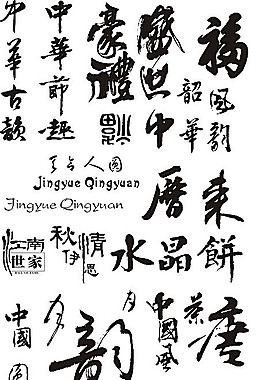 中華古韻
中華節趣
豪禮
盛世中
福
韶華
風韵
天上人圆
Jingyue Qingyuan
Jingyue Qingyuan
江南
世家
秋伊
情思
水晶
曆
来
餅
中國
园
月
韵
月
中國風
茶
唐